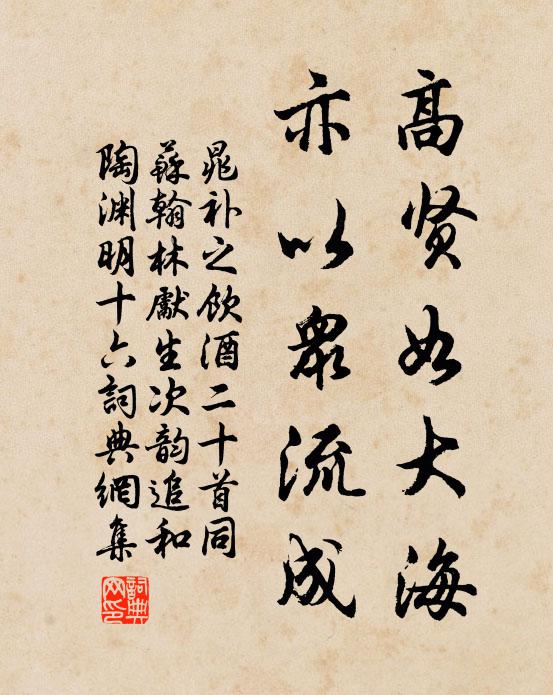 高贤如大海
亦以眾流成
晁补之饮酒二十首同
蘇翰林獻生次韵追和
陶渊明十六詞典網集
詞典
网印